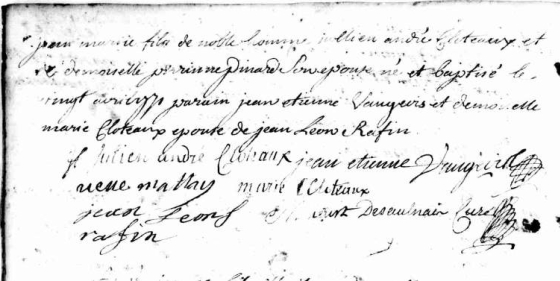 jean marie fils de noble homme Jullien andré Cloteaux et
de demoiselle perinne pinard son epouse né et baptisé le
vingt parain jean etienne Vangeois et demoiselle
marie Cloteaux epouse de jean Leon Rafin
Julien andré Cloteaux jean etienne
marie Cloteaux
jean Leons Desaulnais Curé
rafin